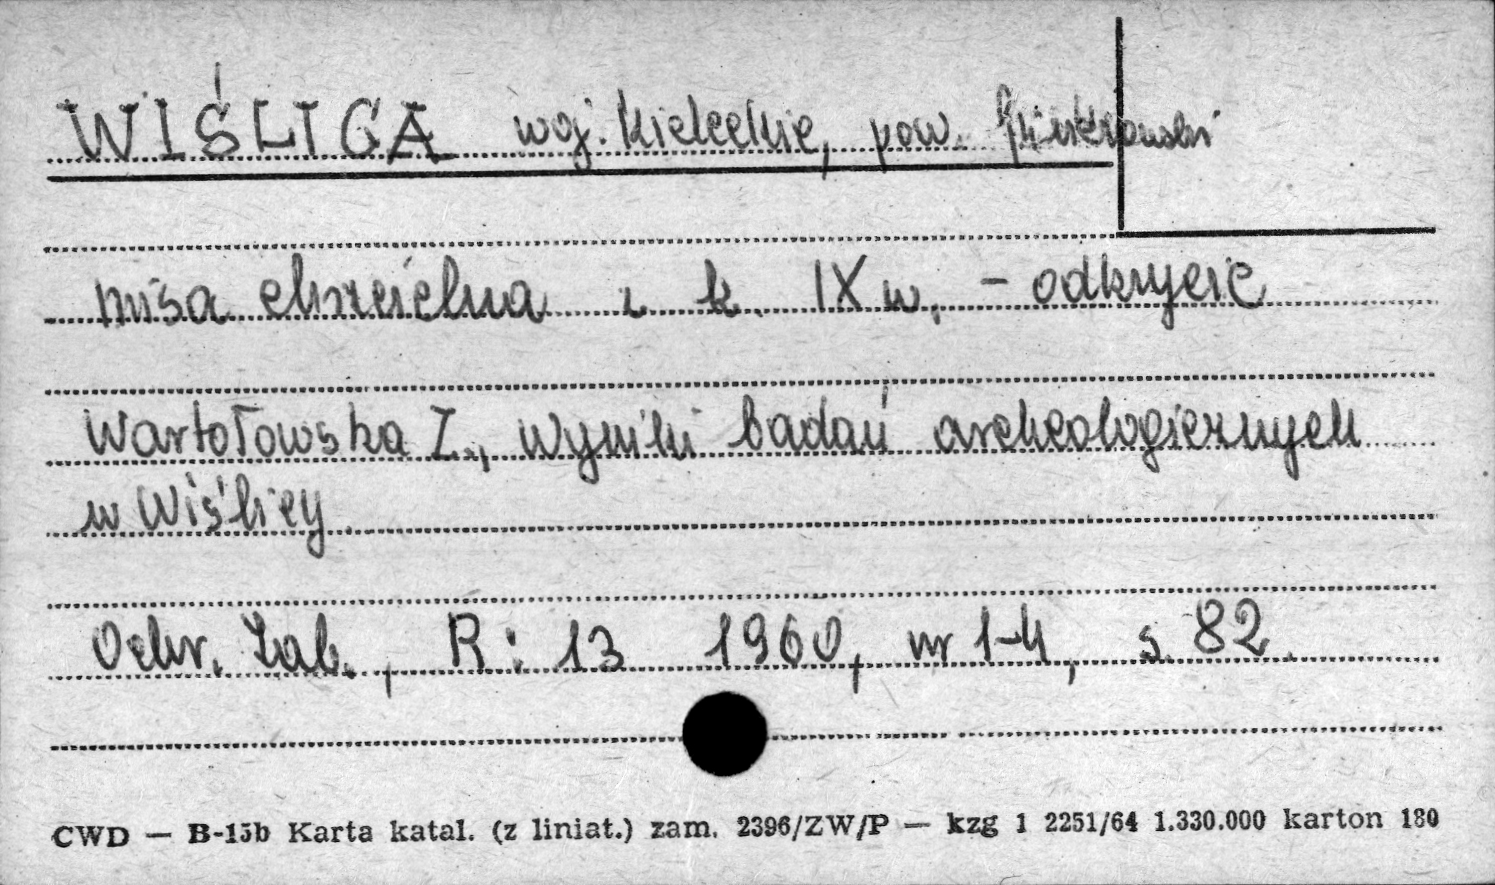 WIŚLICA woj. kieleckie, pow. pińczowski
misa chrzcielna z k. IX w. – odkrycie
Wartołowska Z., Wyniki badań archeologicznych
w Wiślicy
Ochr. Zab., R: 13 1960, nr 1-4, s. 82.
CWD — B-15b Karta katal. (z liniat.) zam. 2396/ZW/P — kzg 1 2251/64 1.330.000 karton 180